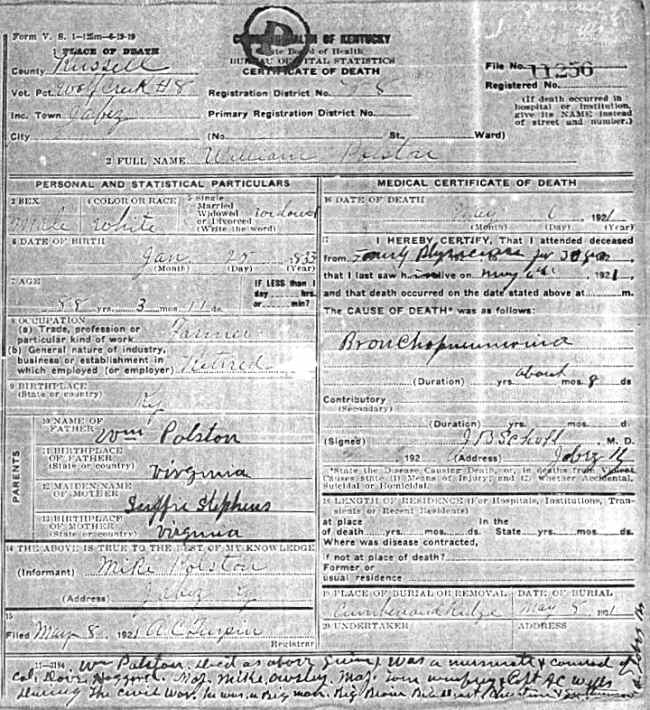 Form V. S. 1-125m-6-19-19
COMMONWEALTH OF KENTUCKY
State Board of Health
BUREAU OF VITAL STATISTICS
CERTIFICATE OF DEATH
1 PLACE OF DEATH
County Russell
Vot. Pct. Wolf Creek #8
Inc. Town Jabez
City (No St., Ward)
Registration District No.
Primary Registration District No.
File No. 11256
Registered No.
(If death occurred in
hospital or institution,
give its NAME instead
of street and number.)
2 FULL NAME William Polston
PERSONAL AND STATISTICAL PARTICULARS
3 SEX
Male
4 COLOR OR RACE
White
5 Single
Married
Widowed
or Divorced
(Write the word)
6 DATE OF BIRTH
Jan 25 1833
(Month) (Day) (Year)
7 AGE
88 yrs. 3 mos. 11 ds.
IF LESS than 1
day hrs.
or min?
8 OCCUPATION
(a) Trade, profession or
particular kind of work Farmer
(b) General nature of industry,
business or establishment in
which employed (or employer) Retired
9 BIRTHPLACE
(State or country)
Ky
PARENTS
10 NAME OF
FATHER
Wm Polston
11 BIRTHPLACE
OF FATHER
(State or country)
Virginia
12 MAIDEN NAME
OF MOTHER
Stephens
13 BIRTHPLACE
OF MOTHER
(State or country)
Virginia
14 THE ABOVE IS TRUE TO THE BEST OF MY KNOWLEDGE
(Informant) Mike Polston
(Address) Jabez Ky
15
Filed May 8 1921 A. C. Turpin
Registrar
MEDICAL CERTIFICATE OF DEATH
16 DATE OF DEATH
May 6 1921
(Month) (Day) (Year)
17 I HEREBY CERTIFY, That I attended deceased
from Family for
that I last saw h alive on May 6 1921
and that death occurred on the date stated above at m.
The CAUSE OF DEATH* was as follows:
Bronchopneumonia
about
(Duration) yrs. mos. 8 ds
Contributory
(Secondary)
(Duration) yrs. mos. d
(Signed) J B Scholl, M. D.
192 (Address) Jabez Ky
*State the Disease Causing Death, or, in deaths from Violent
Causes state (1) Means of Injury; and (2) Whether Accidental,
Suicidal or Homicidal.
LENGTH OF RESIDENCE (For Hospitals, Institutions, Tran-
sients or Recent Residents)
at place In the
of death yrs. mos. ds. State yrs. mos. ds.
Where was disease contracted,
if not at place of death?
Former or
usual residence
19 PLACE OF BURIAL OR REMOVAL
Cumberland Ridge
DATE OF BURIAL
May 8 1921
20 UNDERTAKER
ADDRESS
11-3194 Wm Polston. Died as above given, Was a & comrad of
Col. Dave Haggard. Maj. Mike Owsley Maj. Tom Capt AC Wells
During The Civil War. he was a Big man. Big